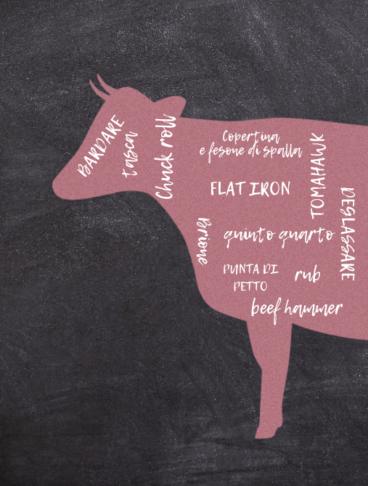 BARDARE
tasca
Chuck roll
Copertina
e fesone di spalla
TOMAHAWK
FLAT IRON
DEGLASSARE
Brione
quinto quarto
PUNTA DI
PETTO
rub
beef hammer